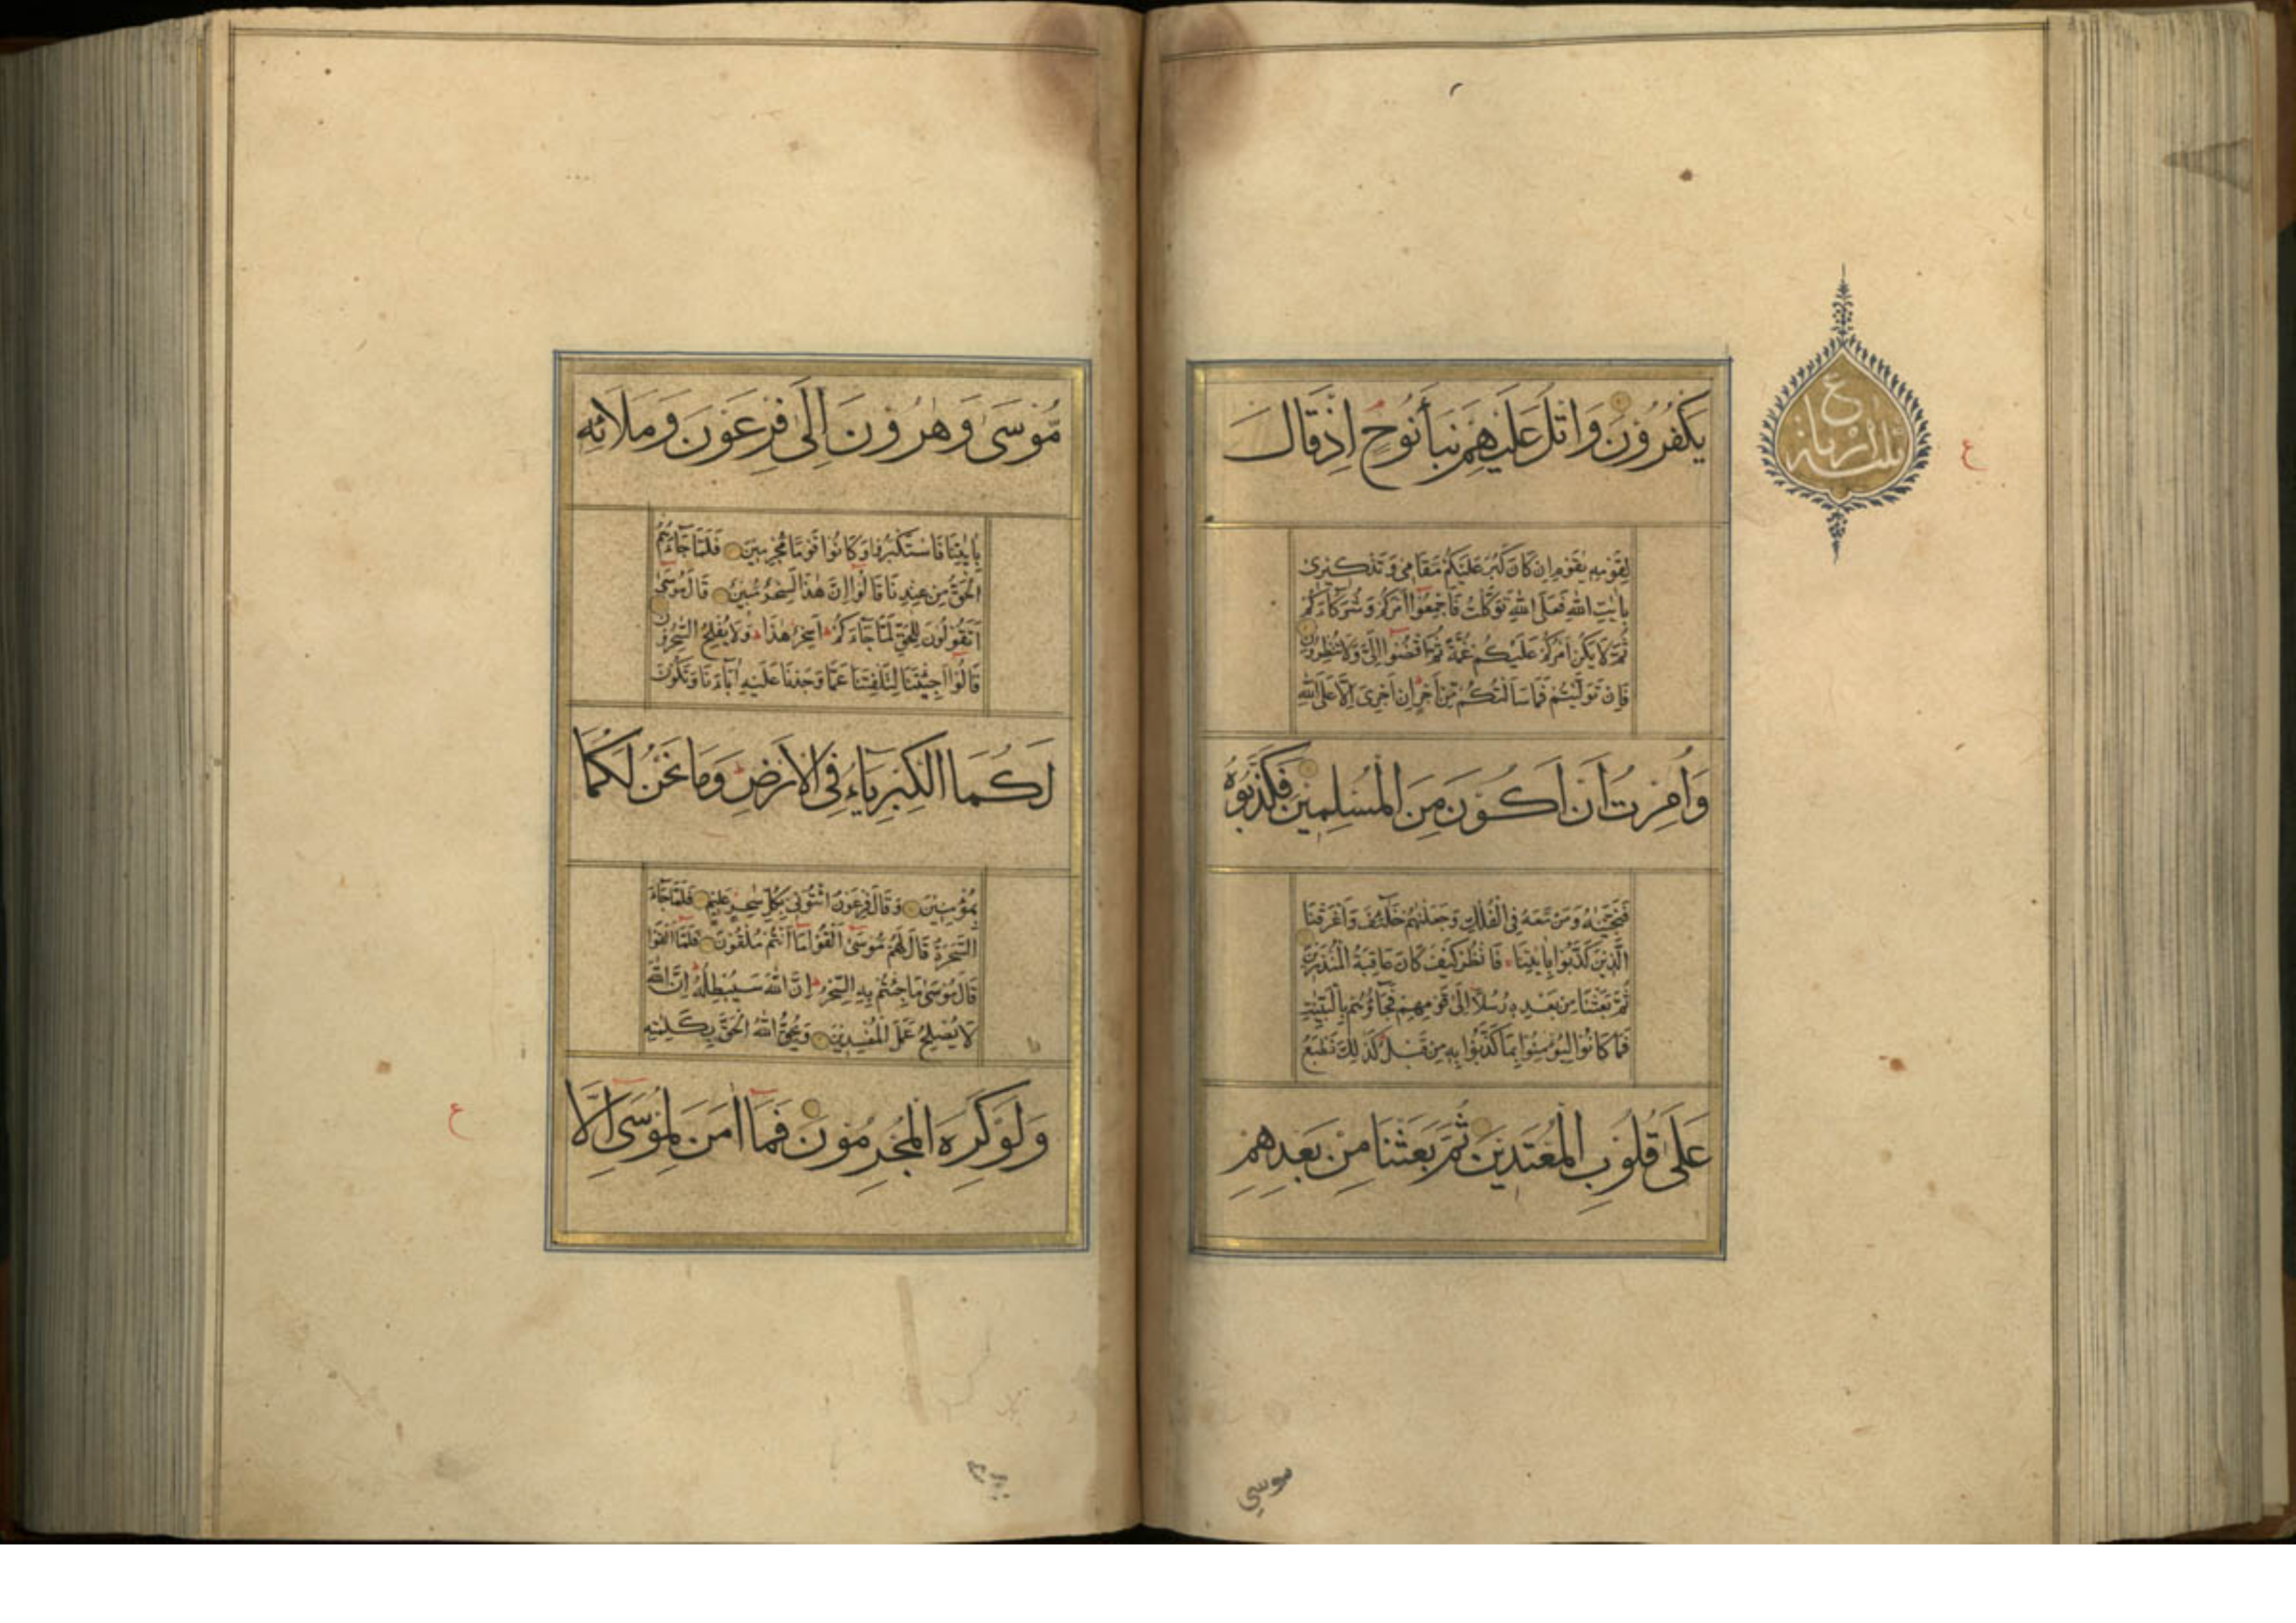 يَكْفُرُوْنَ وَاتْلُ عَلَيْهِمْ نَبَأَ نُوْحٍ اِذْ قَالَ
لِقَوْمِهٖ يٰقَوْمِ اِنْ كَانَ كَبُرَ عَلَيْكُمْ مَقَامِىْ وَتَذْكِيْرِىْ
بِاٰيٰتِ اللّٰهِ فَعَلَى اللّٰهِ تَوَكَّلْتُ فَاَجْمِعُوْا اَمْرَكُمْ وَشُرَكَآءَكُمْ
ثُمَّ لَا يَكُنْ اَمْرُكُمْ عَلَيْكُمْ غُمَّةً ثُمَّ اقْضُوْا اِلَىَّ وَلَا تُنْظِرُوْنِ
فَاِنْ تَوَلَّيْتُمْ فَمَا سَاَلْتُكُمْ مِّنْ اَجْرٍ اِنْ اَجْرِىَ اِلَّا عَلَى اللّٰهِ
وَاُمِرْتُ اَنْ اَكُوْنَ مِنَ الْمُسْلِمِيْنَ فَكَذَّبُوْهُ
فَنَجَّيْنٰهُ وَمَنْ مَّعَهُ فِى الْفُلْكِ وَجَعَلْنٰهُمْ خَلٰٓئِفَ وَاَغْرَقْنَا
الَّذِيْنَ كَذَّبُوْا بِاٰيٰتِنَا فَانْظُرْ كَيْفَ كَانَ عَاقِبَةُ الْمُنْذَرِيْنَ
ثُمَّ بَعَثْنَا مِنْ بَعْدِهٖ رُسُلًا اِلٰى قَوْمِهِمْ فَجَآؤُهُمْ بِالْبَيِّنٰتِ
فَمَا كَانُوْا لِيُؤْمِنُوْا بِمَا كَذَّبُوْا بِهٖ مِنْ قَبْلُ كَذٰلِكَ نَطْبَعُ
عَلٰى قُلُوْبِ الْمُعْتَدِيْنَ ثُمَّ بَعَثْنَا مِنْ بَعْدِهِمْ
ع
ع
موسى
مُّوْسٰى وَهٰرُوْنَ اِلٰى فِرْعَوْنَ وَمَلَائِهٖ
بِاٰيٰتِنَا فَاسْتَكْبَرُوْا وَكَانُوْا قَوْمًا مُّجْرِمِيْنَ فَلَمَّا جَآءَهُمُ
الْحَقُّ مِنْ عِنْدِنَا قَالُوْا اِنَّ هٰذَا لَسِحْرٌ مُّبِيْنٌ قَالَ مُوْسٰى
اَتَقُوْلُوْنَ لِلْحَقِّ لَمَّا جَآءَكُمْ اَسِحْرٌ هٰذَا وَلَا يُفْلِحُ السّٰحِرُوْنَ
قَالُوْا اَجِئْتَنَا لِتَلْفِتَنَا عَمَّا وَجَدْنَا عَلَيْهِ اٰبَآءَنَا وَتَكُوْنَ
لَكُمَا الْكِبْرِيَآءُ فِى الْاَرْضِ وَمَا نَحْنُ لَكُمَا
بِمُؤْمِنِيْنَ وَقَالَ فِرْعَوْنُ ائْتُوْنِىْ بِكُلِّ سٰحِرٍ عَلِيْمٍ فَلَمَّا جَآءَ
السَّحَرَةُ قَالَ لَهُمْ مُّوْسٰى اَلْقُوْا مَا اَنْتُمْ مُّلْقُوْنَ فَلَمَّا اَلْقَوْا
قَالَ مُوْسٰى مَا جِئْتُمْ بِهِ السِّحْرُ اِنَّ اللّٰهَ سَيُبْطِلُهُ اِنَّ اللّٰهَ
لَا يُصْلِحُ عَمَلَ الْمُفْسِدِيْنَ وَيُحِقُّ اللّٰهُ الْحَقَّ بِكَلِمٰتِهٖ
وَلَوْ كَرِهَ الْمُجْرِمُوْنَ فَمَا اٰمَنَ لِمُوْسٰى اِلَّا
ع